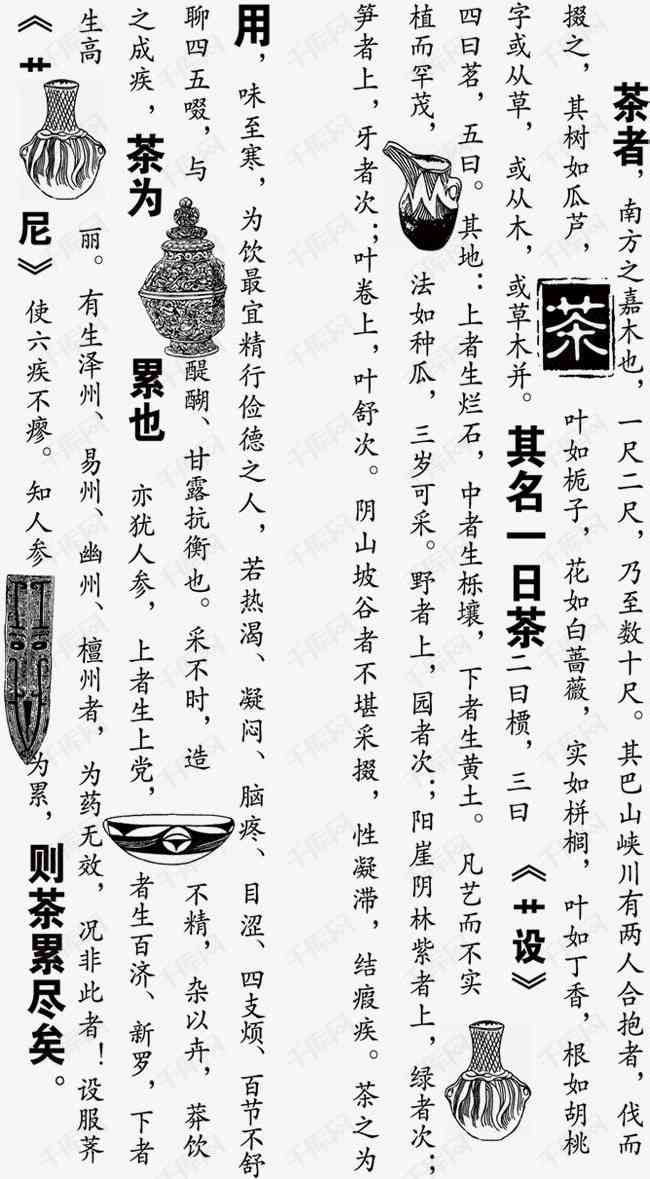 茶者，南方之嘉木也，一尺二尺，乃至数十尺。其巴山峡川有两人合抱者，伐而
掇之，其树如瓜芦，叶如栀子，花如白蔷薇，实如栟榈，叶如丁香，根如胡桃
茶
字或从草，或从木，或草木并。其名一日茶二曰槚，三曰《艹设》
四曰茗，五曰。其地：上者生烂石，中者生栎壤，下者生黄土。凡艺而不实
植而罕茂，法如种瓜，三岁可采。野者上，园者次；阳崖阴林紫者上，绿者次；
笋者上，牙者次；叶卷上，叶舒次。阴山坡谷者不堪采掇，性凝滞，结瘕疾。茶之为
用，味至寒，为饮最宜精行俭德之人，若热渴、凝闷、脑疼、目涩、四支烦、百节不舒
聊四五啜，与醍醐、甘露抗衡也。采不时，造不精，杂以卉，莽饮
之成疾，茶为累也亦犹人参，上者生上党，者生百济、新罗，下者
生高丽。有生泽州、易州、幽州、檀州者，为药无效，况非此者！设服荠
《艹尼》使六疾不瘳。知人参为累，则茶累尽矣。
千库网